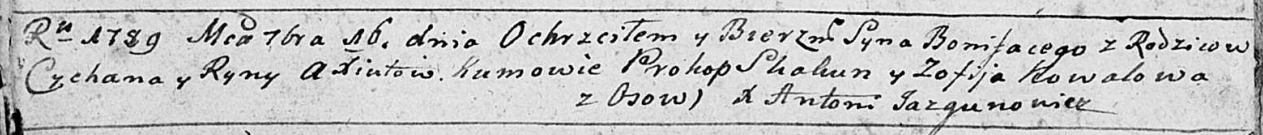 Ru 1789 Mca 7bra 16. dnia Ochrzciłem y Bierzm Syna Bonifacego z Rodzicow
Cychana y Ryny Axiutow. Kumowie Prokop Skakun y Zofija Kowalowa
z Osow) X Antoni Jazgunowicz